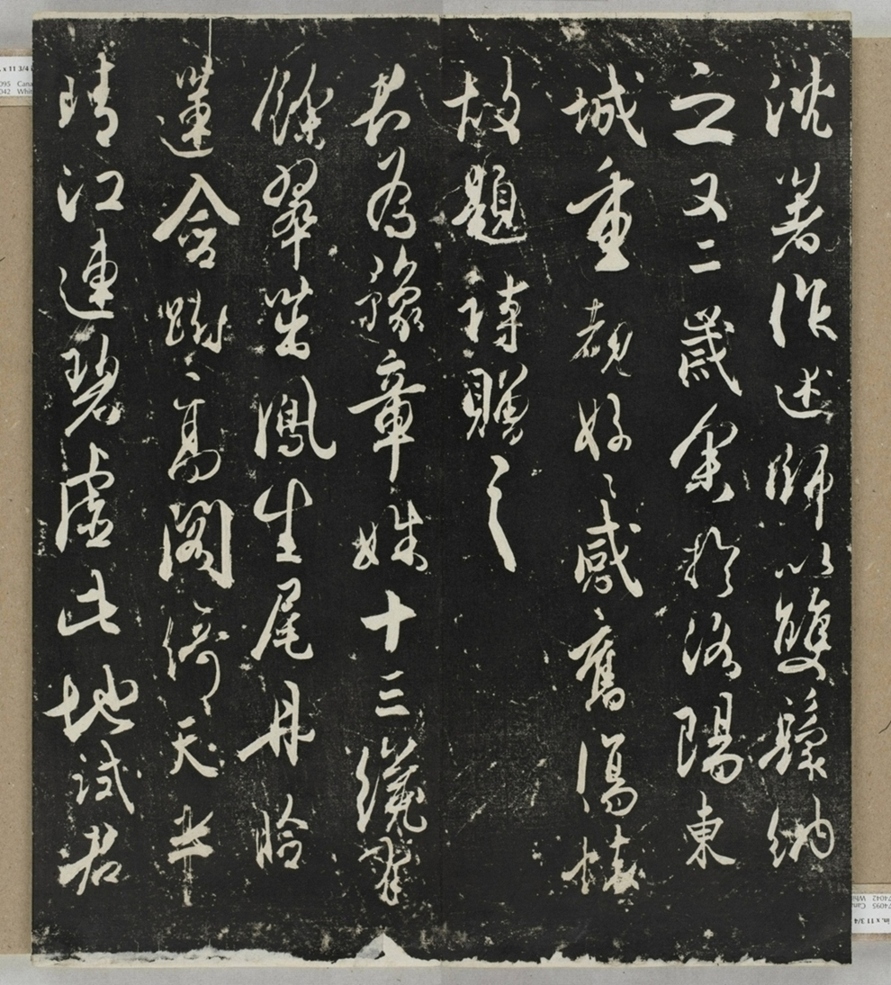 沈著作述師以雙鬟納
之又二歲余於洛陽東
城重覩好〻感舊傷懷
故題詩贈之
君為豫章姝十三纔有
餘翠茁鳳生尾丹臉
蓮含跗高閣倚天半
晴江連碧虛此地試君
x 11 3/4